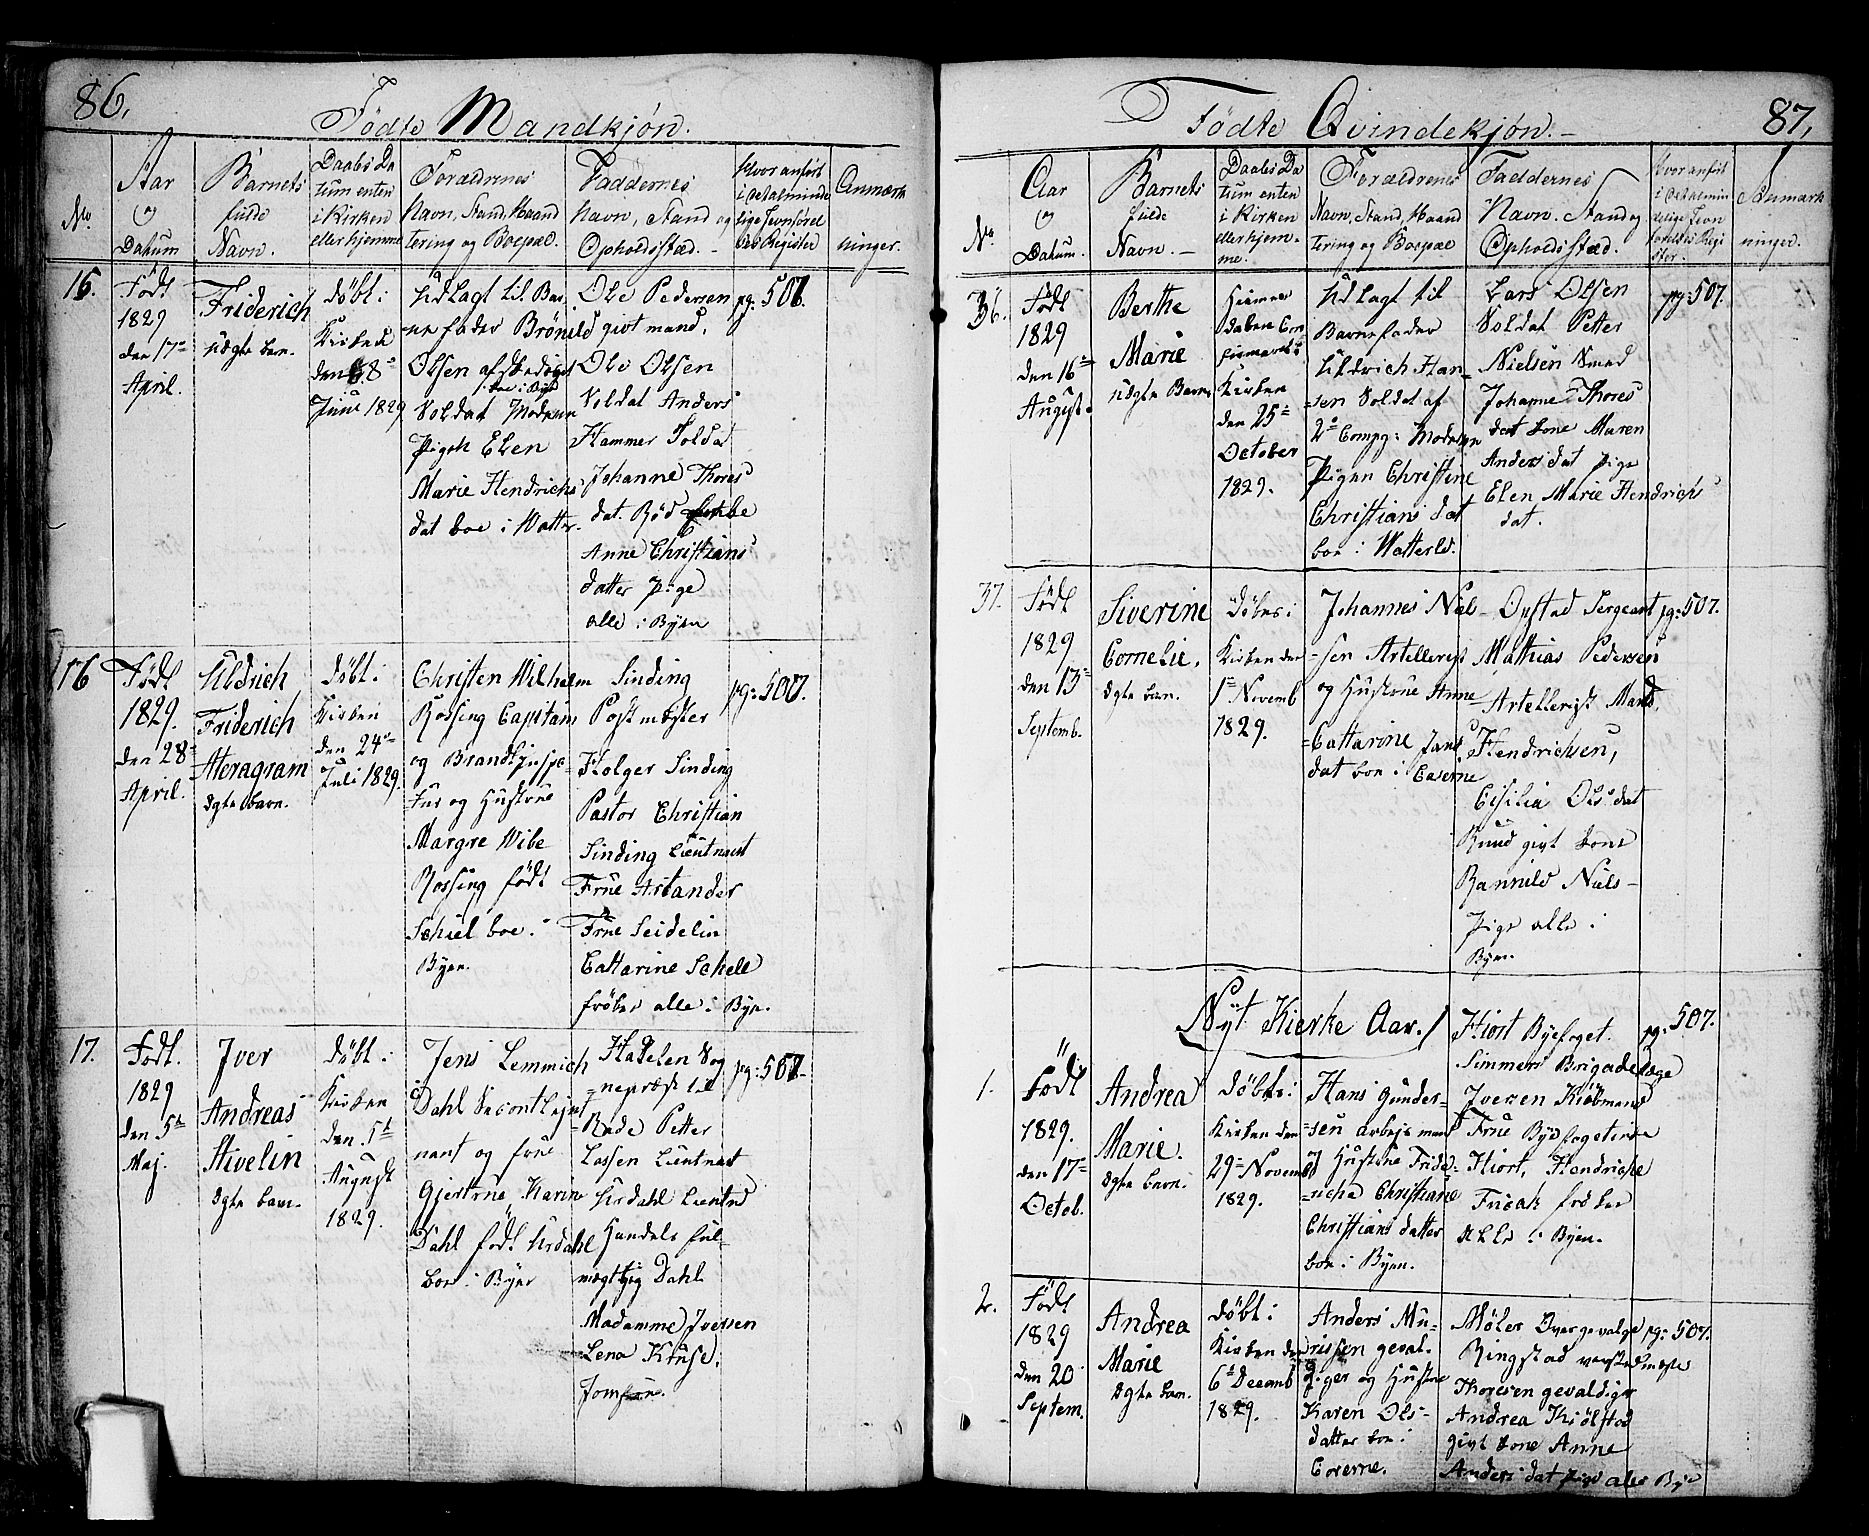 86.
Födte Mandkjön.
No.
Aar
og
Datum
Barnets
fulde
Navn.
Daabs Da
tum enten
i Kirken
eller hjemme
Forældrenes
Navn, Stand, Haand
tering og Boepæl.
Faddernes
Navn, Stand og
Opholdssted.
Hvor anfört
i det alminde
lige Jevnförel
ses Register
Anmærk
ninger.
16.
Födt
1829
den 17de
April.
Friderich
uægte barn.
döbt i
Kirken
den 8de
Juni 1829
Udlagt til Bar
nefader Brönild
Olsen afskediget
boe i Byen
Soldat Moderen
Pigen Elen
Marie Hendrichs
dat boe i Watter.
Ole Pedersen
givt mand.
Ole Olsen
Soldat Anders
Hammer Soldat
Johanne Thores
dat. Röd
Anne Christians
datter pige
alle i Byen
pg: 507.
16
Födt
1829.
den 28de
April.
Uldrich
Friderich
Meragram
ægte barn.
döbt i
Kirken
den 24de
Juli 1829.
Christen Wilhelm
Rossing Capitain
og Brandinspec
teur og Hustrue
Margre Wibe
Rossing födt
Schiel boe i
Byen.
Sinding
Postmester
Holger Sinding
Pastor Christian
Sinding Lieutnant
Frue Astander
Frue Seidelin
Cattarine Schele
fröken alle i Byen.
pg: 507.
17.
Födt.
1829
den 5te
Maj.
Iver
Andreas
Hivelin
ægte barn.
döbt i
Kirken
den 5te
August
1829.
Jens Lemmich
Dahl Secontlieut
nant og frue
Gjertrue Karin
Dahl födt Urdahl
boe i Byen
Hadelen Sog
nepræst til
Rade Petter
Lassen Lieutnant
Urdahl Lieutnd
Handels ful-
mægtig Dahl
Madamme Iversen
Lena Kruse.
Jomfrue.
pg: 507.
87.
Födte Qvindekjön.
No.
Aar
og
Datum.
Barnets
fulde
Navn.
Daabs Da
tum enten
i Kirken
eller hjem-
me.
Forældrenes
Navn, Stand, Haand
tering og Boepæl
Faddernes
Navn. Stand og
Opholdssted.
Hvor anfört
i det almin
delige Jevn
förelses Regi
ster.
Anmærk
ninger.
36.
Födt
1829
den 16de
August.
Berthe
Marie
uægte Barn
Hjemme
daaben Con
firmeret i
Kirken
den 25de
October
1829.
Udlagt til
Barnefader
Uldrich Han-
sen Soldat af
2de Compg: Moderen
Pigen Christine
Christians dat
boe i Watterld.
Lars Olsen
Soldat Petter
Nielsen Smed
Johanne Thores
dat kone Maren
Anders dat pige
Elen Marie Hendrichs
dat.
pg 507.
37.
Födt
1829
den 13de
Septemb.
Siverine
Cornelie.
ægte barn.
döbes i
Kirken den
1de Novemb
1829.
Johannes Niel-
sen Artellerist
og Hustrue Anne
Cattarine Jans
dat boe i Caserne
Opstad Sergeant
Mathias Pedersen
Artellerist Mads
Hendrichsen,
Cisilia Ols dat
Knud givt kone
Rannild Niels-
Pige alle i
Byen.
pg: 507.
Nyt Kierke Aar.
1.
Födt
1829.
den 17de
Octob.
Andrea
Marie.
ægte barn.
döbt i
Kirken den
29de Novemb
1829.
Hans Gunder-
sen arbejs mand
Hustrue Fride-
richa Christiane
Christians datter
boe i Byen.
Hiort Byefoget.
Simmers Brigadelæge
Iversen Kiöbmand
Frue Byefogetinde
Hiort, Hendriche
Frieak fröken
alle i Byen.
pg: 507.
2.
Födt
1829
den 20
Septem.
Andrea
Marie
ægte barn.
döbt i
Kirken den
6te Decemb
1829.
Anders Mu-
rissen geval-
diger og Hustrue
Karen Ols-
datter boe i
Coverne.
Möler Overgevalge
Ringstad verstedmester
Thoresen gevaldiger
Andrea Kiölstad
givt kone Anne
Anders dat pige alle Bye
pg: 507.